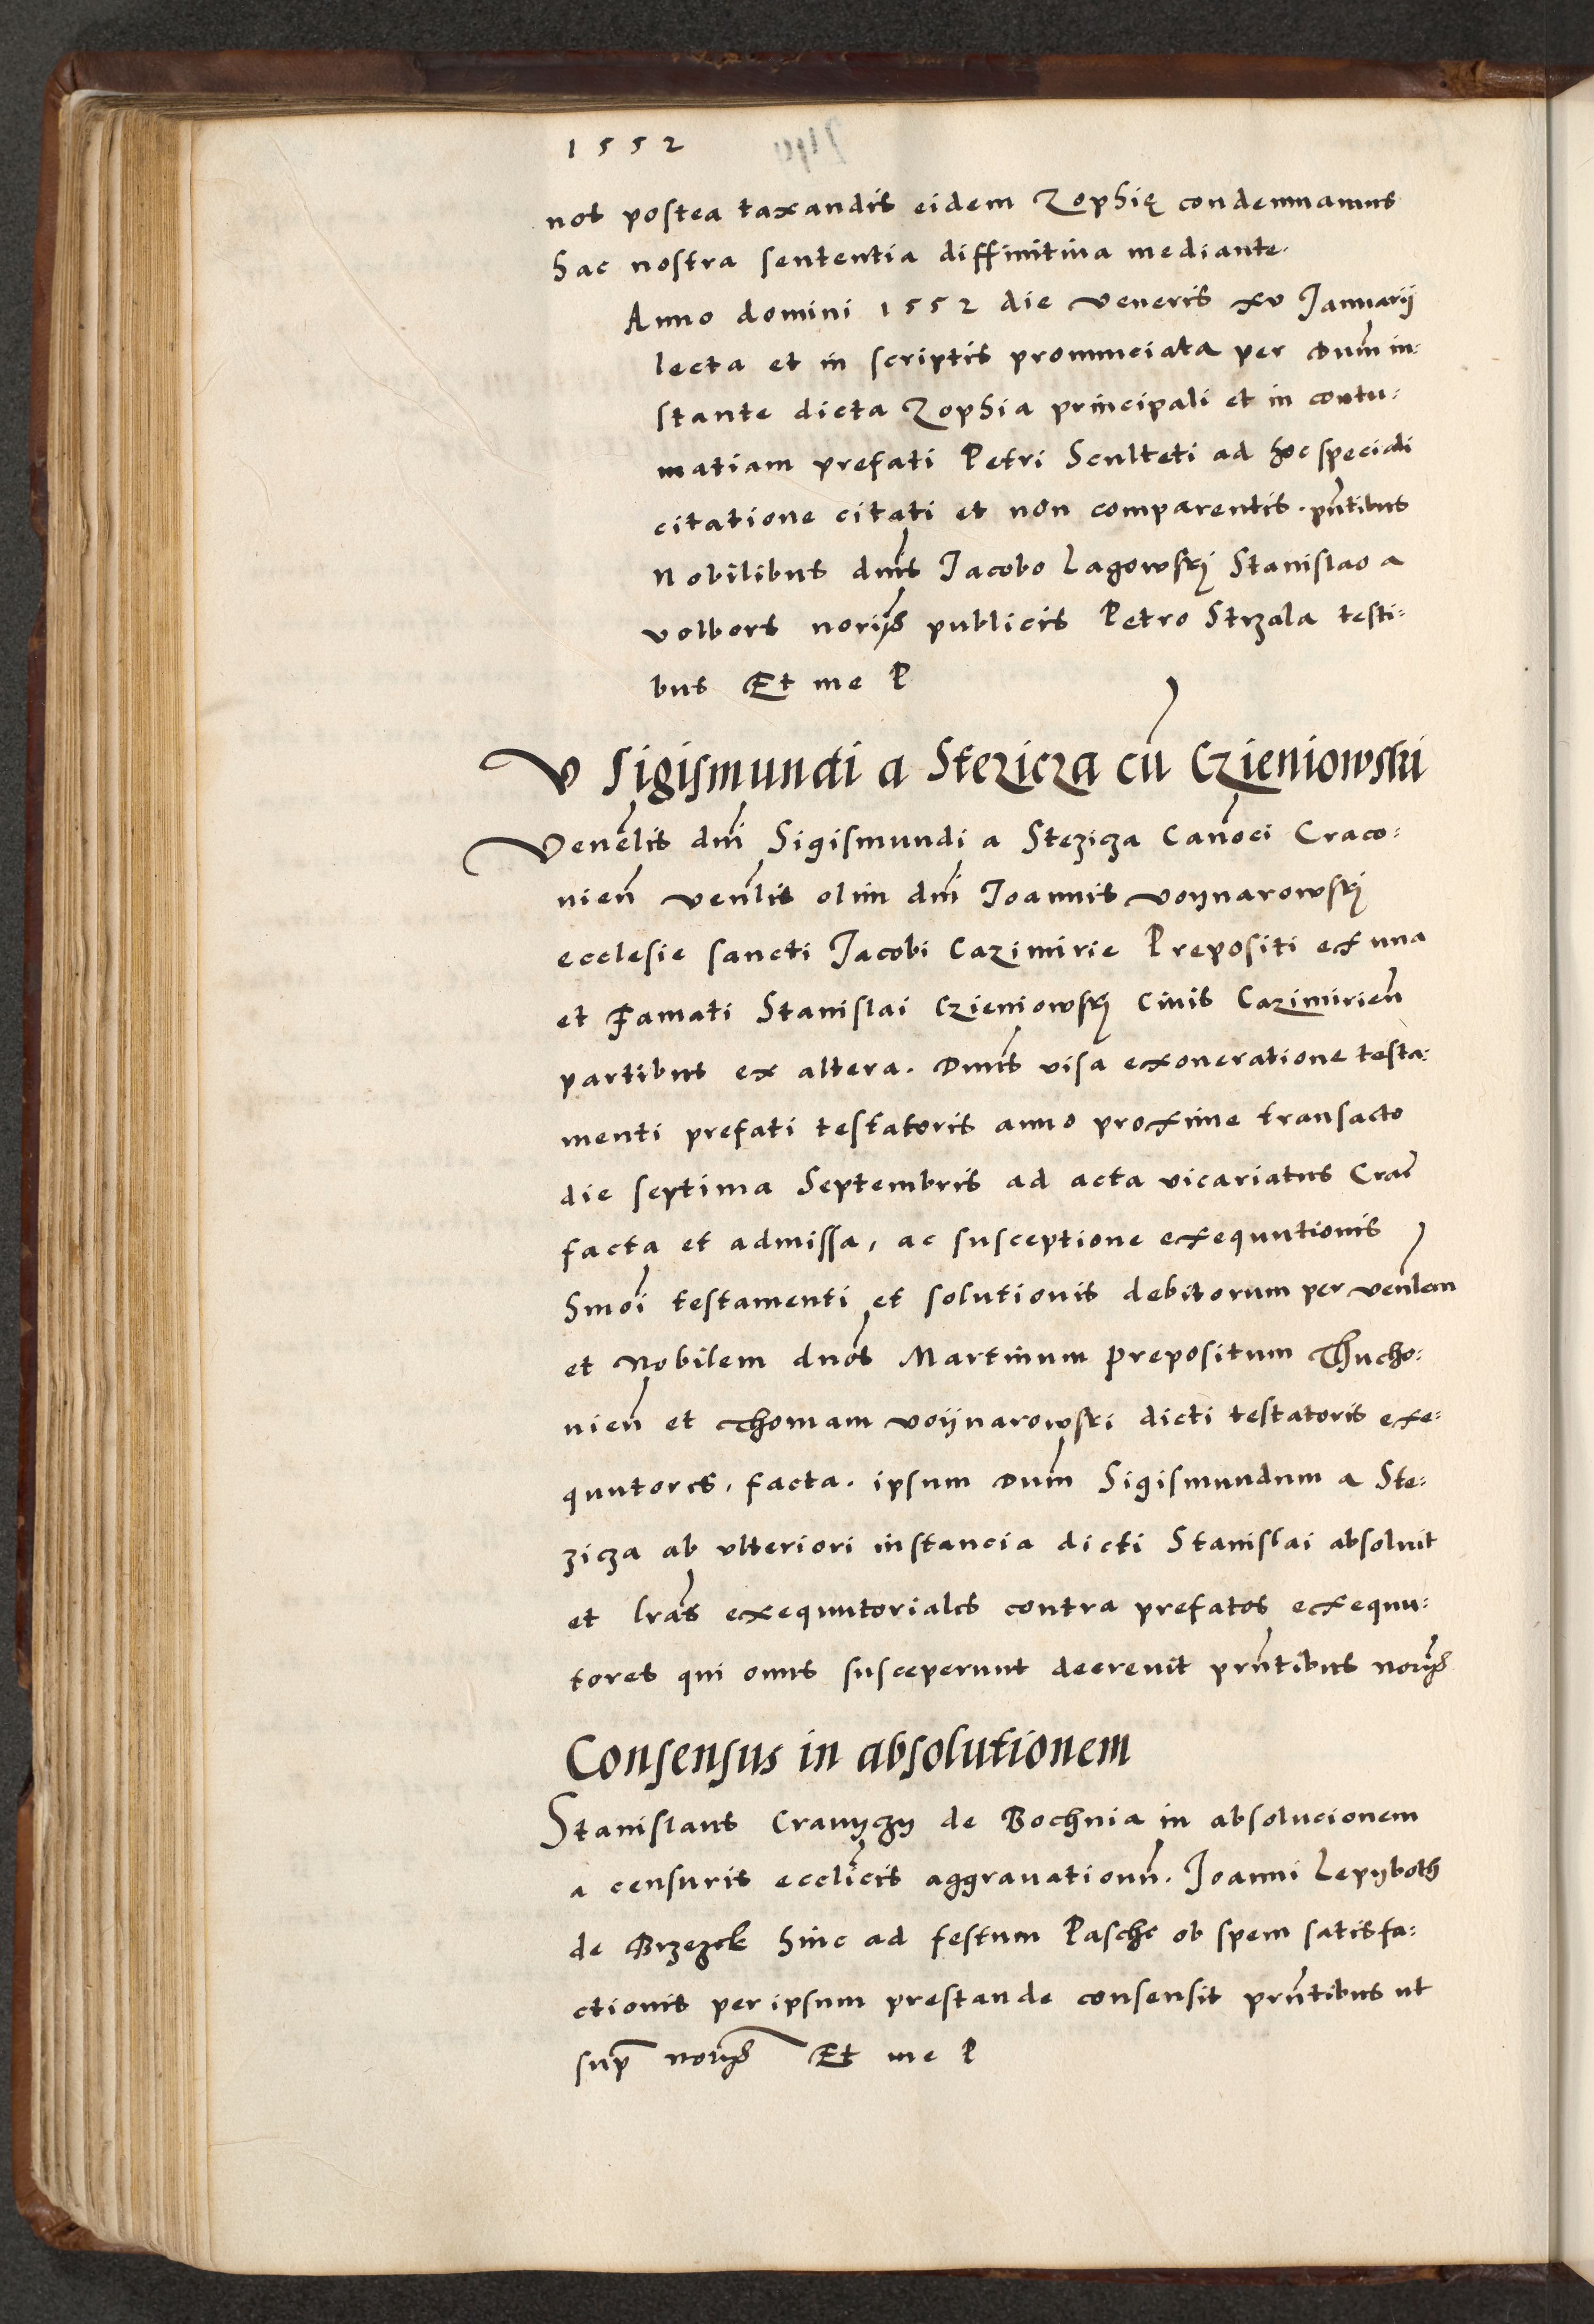 1552
nos postea taxandis eidem Zophię condemnamus
hac nostra sententia diffinitiva mediante.
Anno domini 1552 die veneris xv Januarij
lecta et in scriptis pronunciata per dnm̄ in-
stante dicta Zophia principali et in contu-
matiam prefati Petri Sculteti ad hoc speciali
citatione citati et non comparentis. pn̄tibus
Nobilibus dnīs Jacobo Lagowskj Stanislao a
volbors norijs publicis Petro Strzala testi-
bus Et me P
V Sigismundi a Stezicza cū Czieniowski
Venēlis dnī Sigismundi a Stezicza Canōci Craco-
nien̄ venēlis olim dnī Joannis voynarowskj
ecclesie sancti Jacobi Cazimirie Prepositi ex una
et Famati Stanislai Czieniowskj Civis Cazimirien̄
partibus ex altera. Dnūs visa exoneratione testa-
menti prefati testatoris anno proxime transacto
die septima Septembris ad acta vicariatus Crac̄
facta et admissa, ac susceptione exequutionis
hmōi testamenti et solutionis debitorum per venlēm
et Nobilem dnōs Martinum prepositum Thucho-
nien̄ et Thomam voijnarowski dicti testatoris exe-
quutores. facta. ipsum Dnūm Sigismundum a Ste-
zicza ab ulteriori instancia dicti Stanislai absoluit
et lrās exequutoriales contra prefatos exequu-
tores qui onus susceperunt decrevit prn̄tibus norijs
Consensus in absolutionem
Stanislaus Cravyczy de Bochnia in absolucionem
a censuris ecclīcis aggravationū. Joanni Lepyboth
de Brzezek hinc ad festum Pasche ob spem satisfa-
ctionis per ipsum prestande consensit prn̄tibus ut
sup̄ norijs Et me P